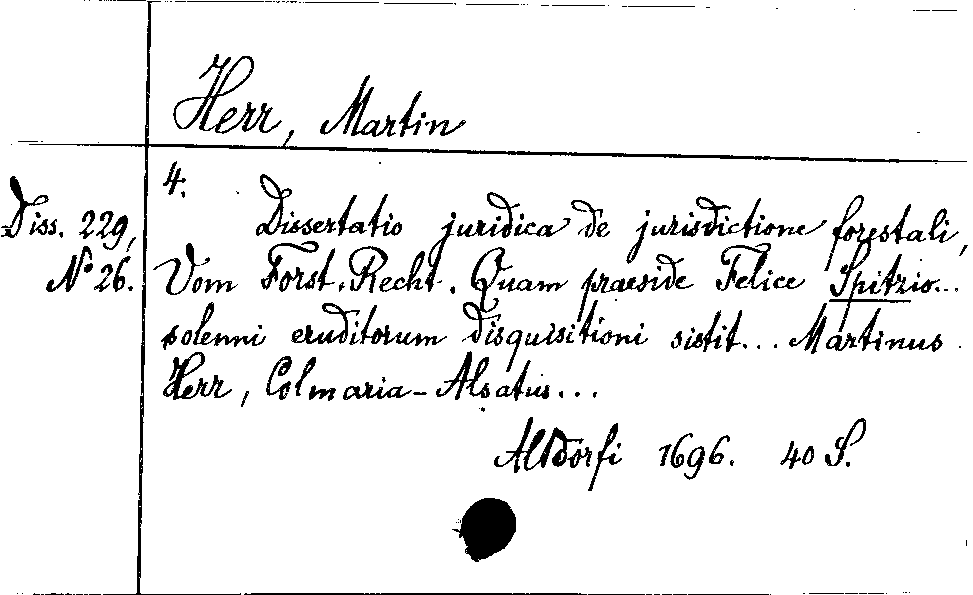 Herr, Martin
4.
Diss. 229,
No 26.
Dissertatio juridica de jurisdictione forestali,
Vom Forst-Recht. Quam praeside Felice Spitzio...
solenni eruditorum disquisitioni sistit... Martinus
Herr, Colmaria-Alsatus...
Altdorfi 1696. 40 S.